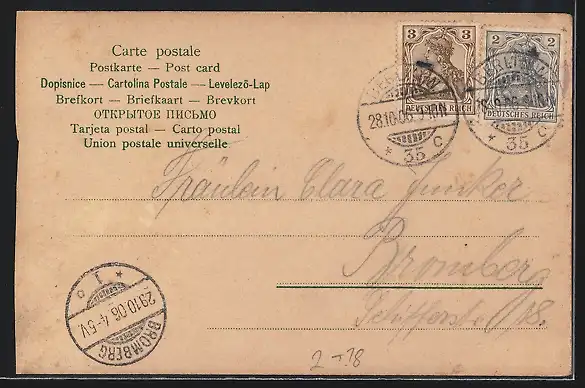 Carte postale
Postkarte — Post card
Dopisnice — Cartolina Postale — Levelező-Lap
Brefkort — Briefkaart — Brevkort
ОТКРЫТОЕ ПИСЬМО
Tarjeta postal — Carto postal
Union postale universelle
3 3
DEUTSCHES REICH
2 2
DEUTSCHES REICH
BERLIN
28.10.06
* 35 c
BERLIN
28.10.06
* 35 c
Fräulein Clara Junker
Bromberg
18.
BROMBERG
29.10.06 4-5V.
* 1 o